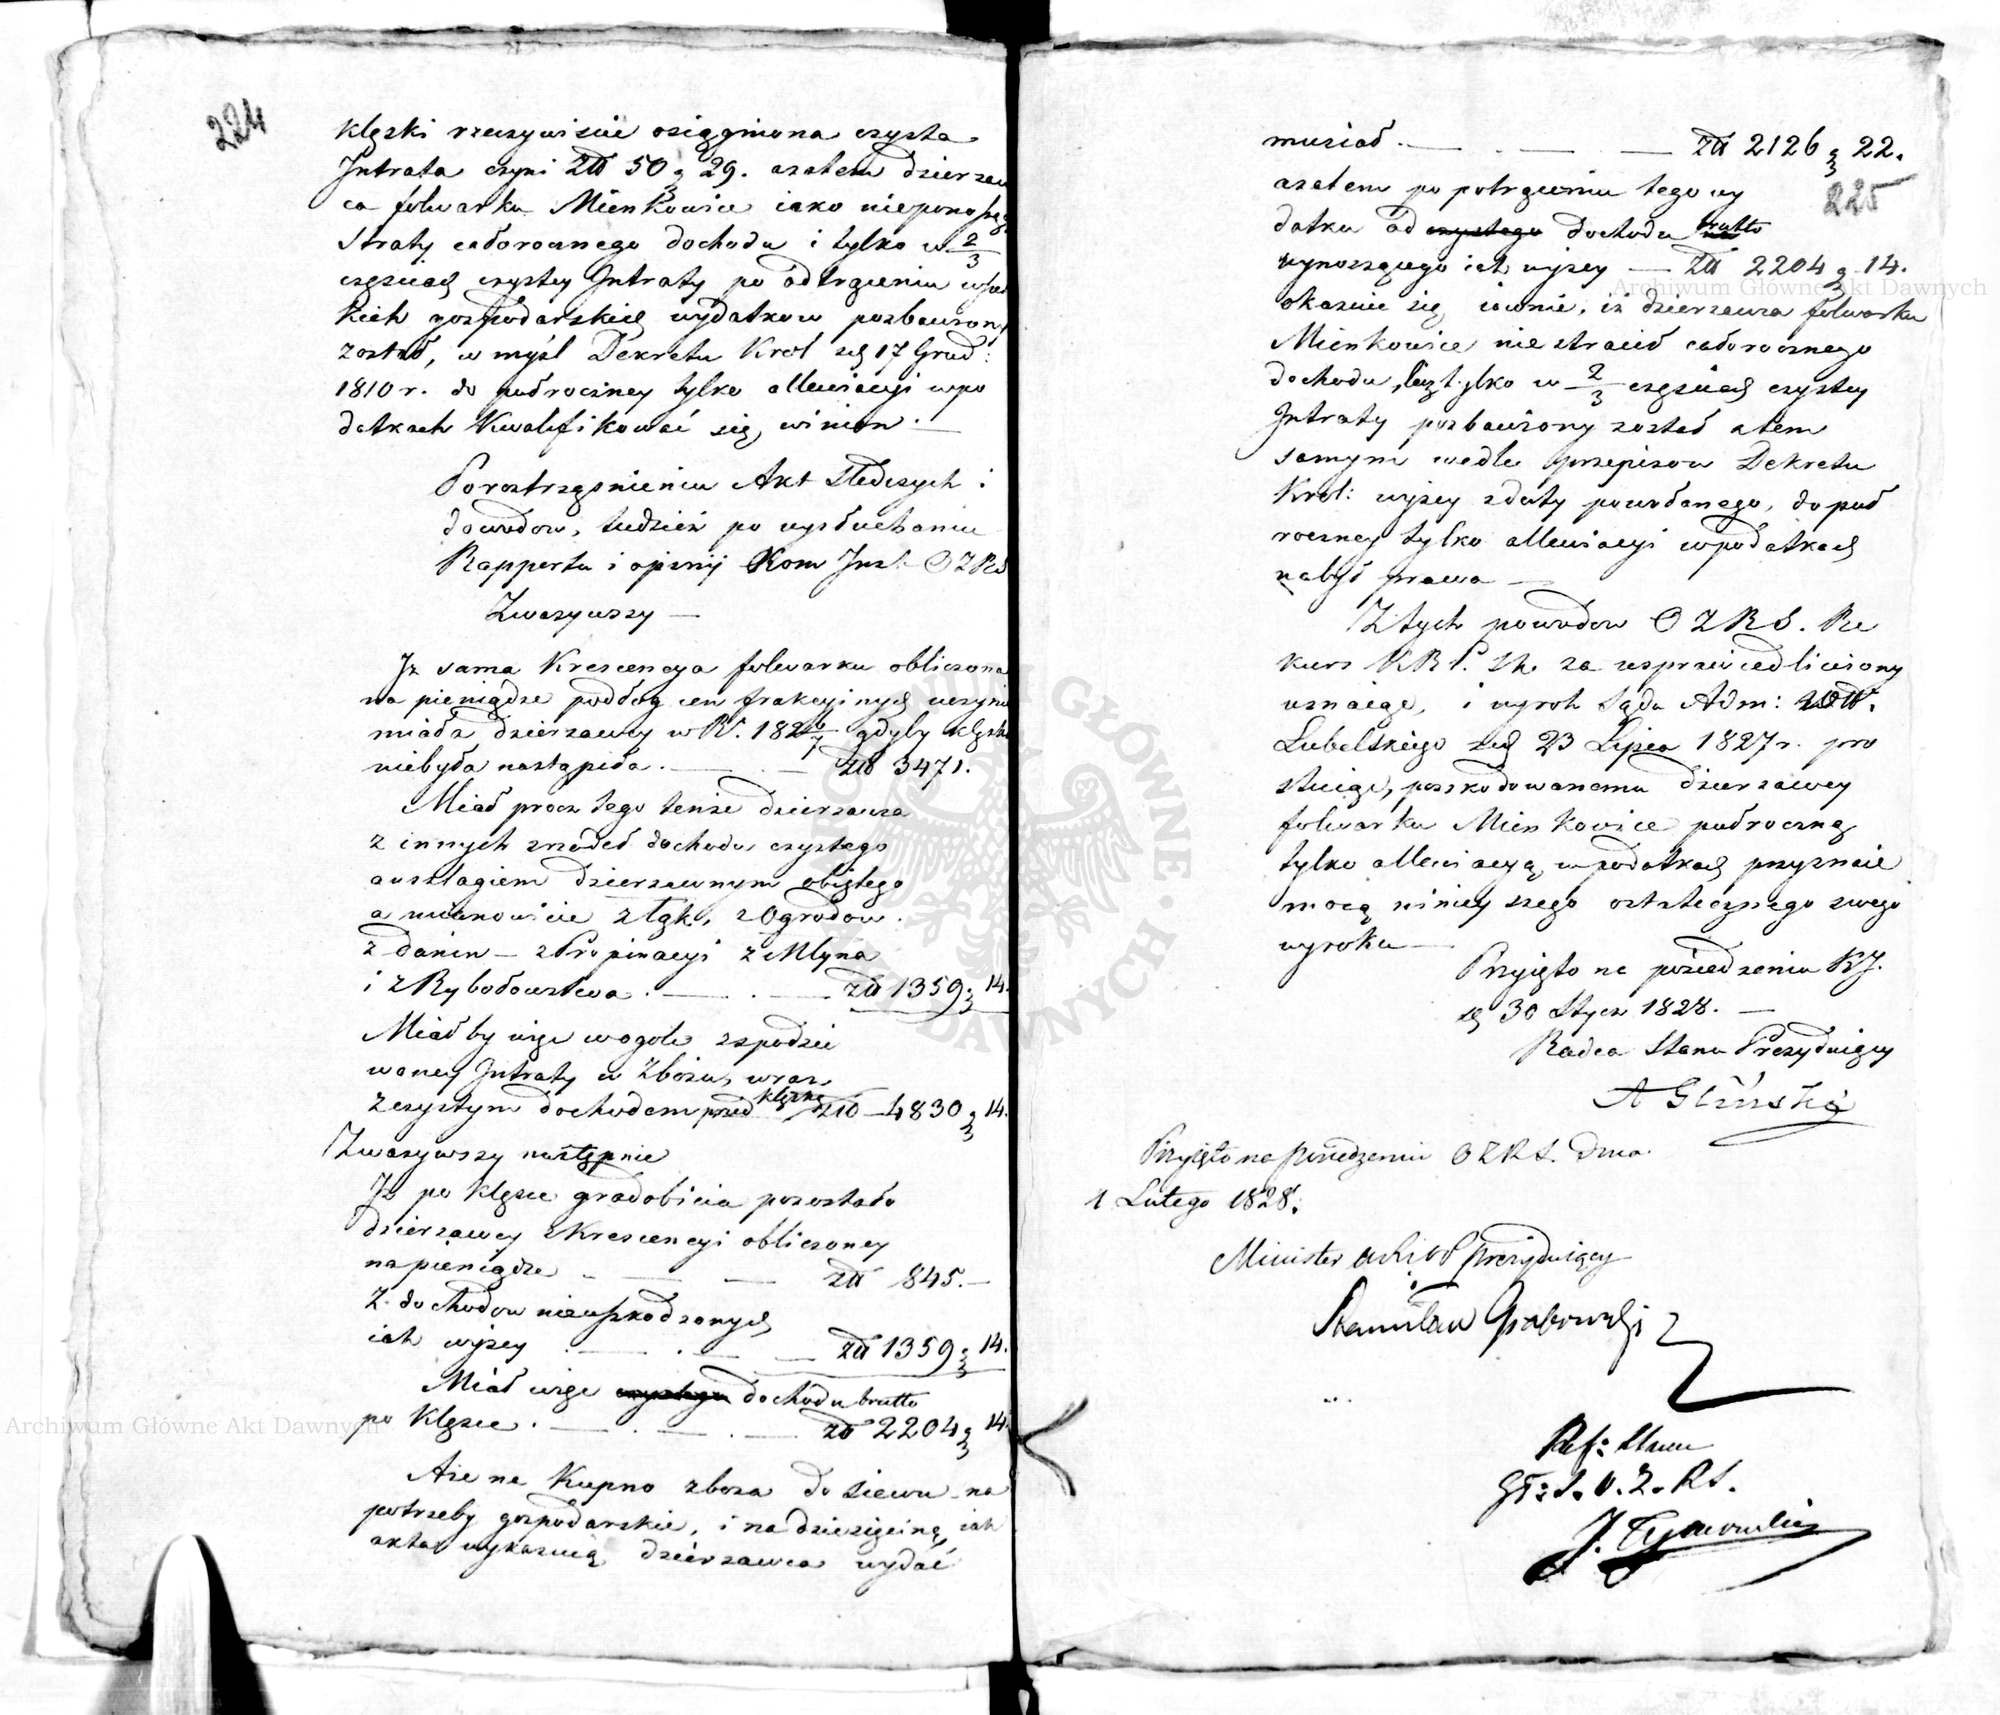 224
klęski rzeczywiscie osiągniona czysta
Intrata czyni Złł 50 g 29. azatem dzierzaw
ca folwarku Mienkowice iako nieponoszący
straty całorocznego dochodu i tylko w 2/3
częściach czystey Intraty po odtrąceniu wszel
kich gospodarskich wydatkow pozbawiony
został, w myśl Dekretu Król z d 17 Grud:
1810 r. do półroczney tylko allewiacyi wpo
datkach Kwalifikować się winien. —
Po roztrząśnieniu Akt Sledczych i
dowodow, tudzież po wysłuchaniu
Rapportu i opinij Kom Inst OZRS
Zwazywszy —
Iz sama Krescencya folwarku obliczona
na pieniądze podług cen frakcyinych uczynić
miała dzierzawcy w R. 1826/7 gdyby klęska
niebyła nastąpiła. — złł 3471.
Miał procz tego tenże dzierzawca
z innych zródeł dochodu czystego
anszlagiem dzierzawnym obiętego
a mianowicie z łąk, z Ogrodow
z danin — z Propinacyi z Młyna
i z Rybołowstwa. — . — złł 1359 g 14.
Miałby więc wogole zspodzie
waney Intraty w Zbożu, wraz
zczystym dochodem przed klęską złł — 4830 g 14.
Zwazywszy następnie
Iż po klęsce gradobicia pozostało
dzierzawcy z Krescencyi obliczoney
na pieniądze — — złł 845. —
Z dochodow nieuszkodzonych
iak wyżey . — . — — złł 1359 g 14.
Miał więc czystego dochodu brutto
po klęsce. — . — . — złł 2204 g 14.
Aże na Kupno zboza do siewu na
potrzeby gospodarskie, i na dziesięcinę iak
akta wykazuią dzierzawca wydać
musiał. — . — — złł 2126 g 22.
225
azatem po potrąceniu tego wy
datku od czystego dochodu brutto
wynoszącego iak wyżey — złł 2204 g 14.
okazuie się iawnie, iż dzierzawca folwarku
Mienkowice nie stracił całorocznego
dochodu, lecz tylko w 2/3 częściach czystey
Intraty pozbawiony został atem
samym wedle przepisow Dekretu
Król: wyżey z daty powołanego, do pół
roczney tylko allewiacyi wpodatkach
nabył prawa —
Z tych powodow OZRS. Re
kurs KRP. Sk. za usprawiedliwiony
uznaiąc, i wyrok Sądu Adm: Wdz.
Lubelskiego z d 23 Lipca 1827 r. pro
stuiąc, poszkodowanemu dzierzawcy
folwarku Mienkowice półroczną
tylko allewiacyą wpodatkach przyznaie
mocą ninieyszego ostatecznego swego
wyroku —
Przyięto na posiedzeniu KJ.
d 30 Stycz 1828. —
Radca Stanu Prezyduiący
A Gliński
Przyięto na posiedzeniu OZRS. dnia
1 Lutego 1828.
Minister Prezyduiący
Stanisław Grabowski
Ref: Stanu
J. Tymowski
Archiwum Główne Akt Dawnych
Archiwum Główne Akt Dawnych
ARCHIWUM GŁÓWNE · AKT DAWNYCH ·